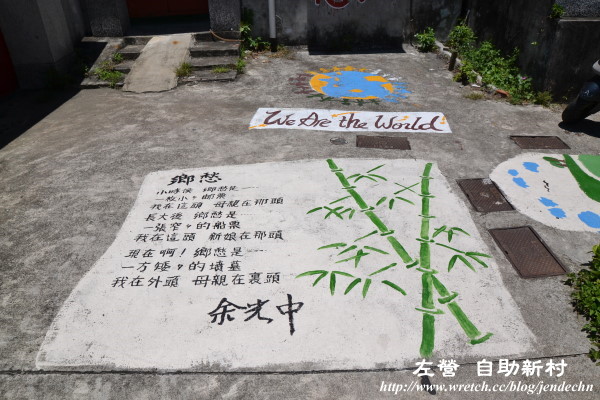 We Are the World
鄉愁
小時侯 鄉愁是一
一枚小小郵票
我在這頭 母親在那頭
長大後 鄉愁是一
一張窄々的船票
我在這頭 新娘在那頭
現在啊！鄉愁是一
一方矮々的墳墓
我在外頭 母親在裏頭
余光中
左營 自助新村
http://www.wretch.cc/blog/jendechn